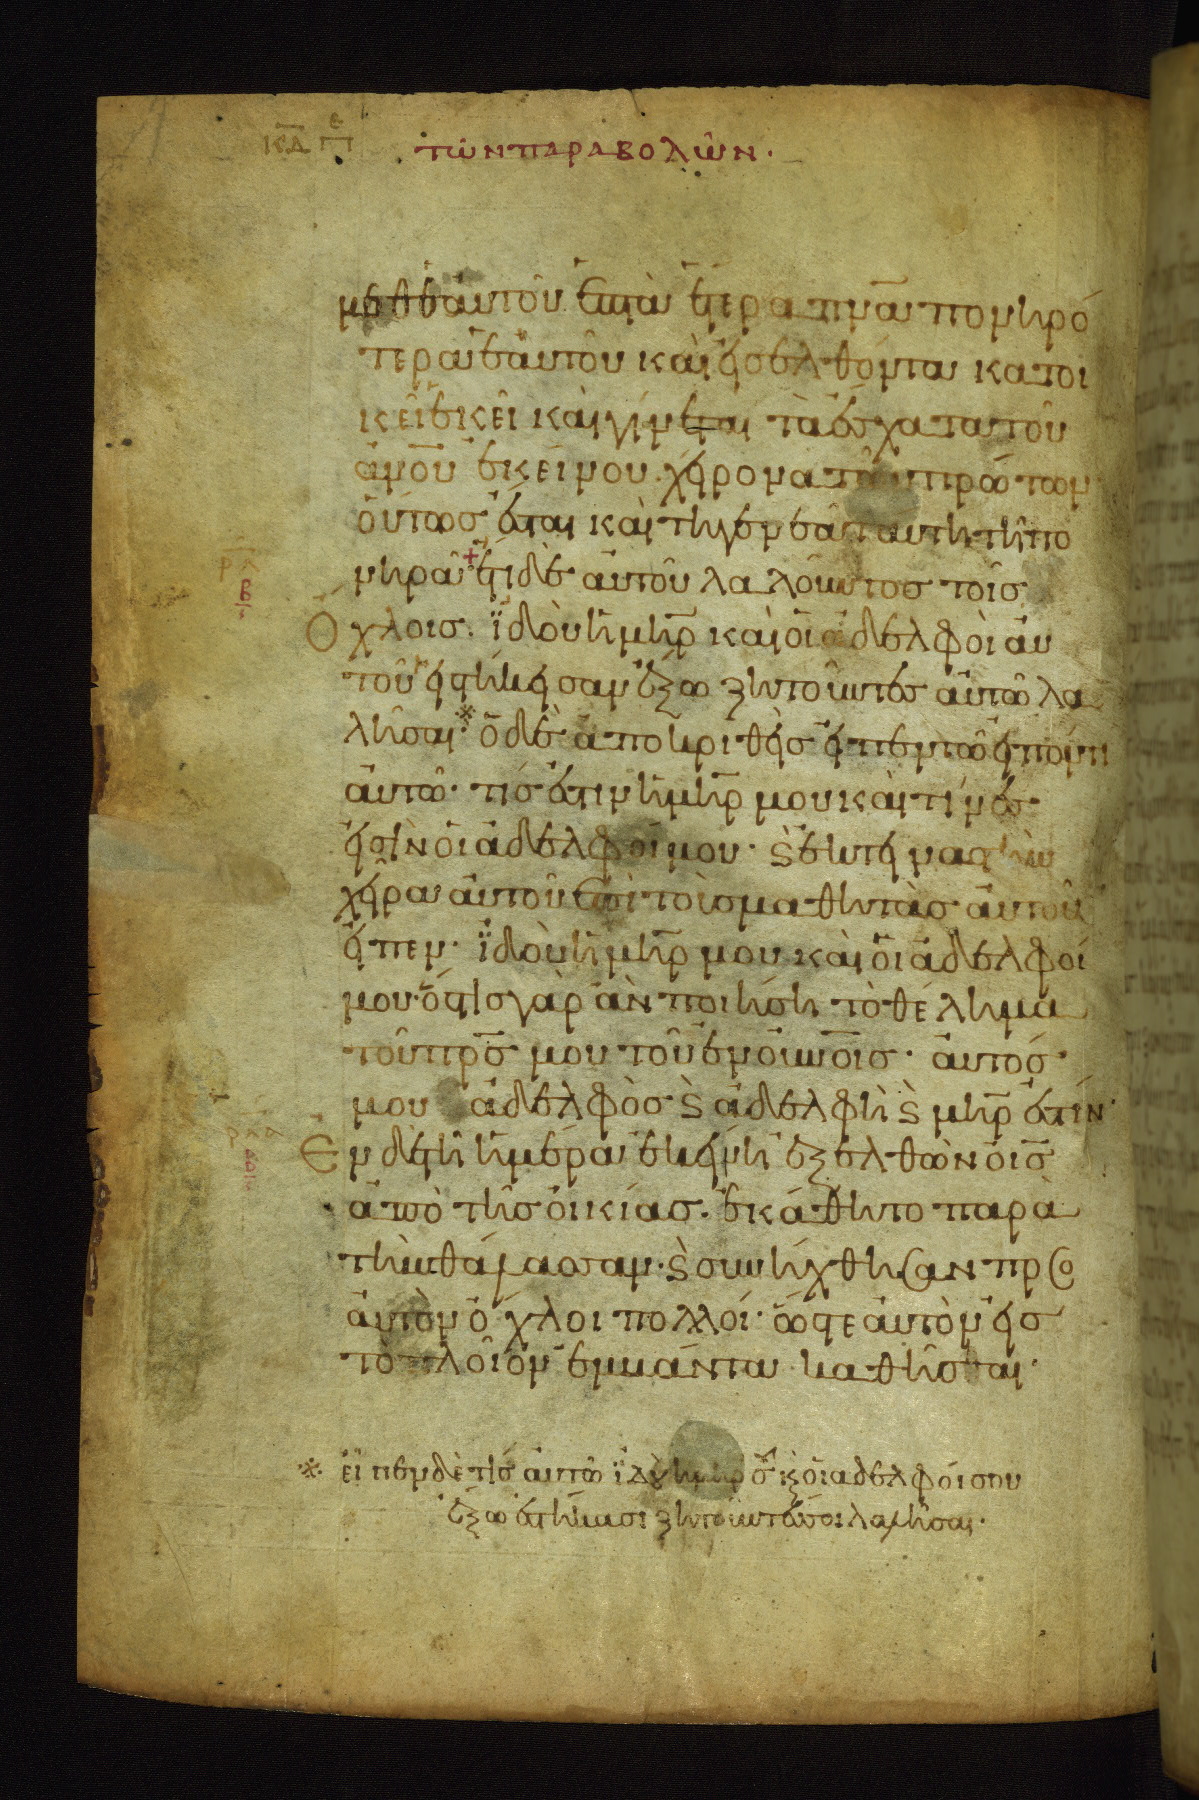 κδ πε τῶν παραβολῶν.
μεθ ἑαυτοῦ ἑπτὰ ἕτερα πνα πονηρό
τερα ἑαυτοῦ καὶ εἰσελθόντα κατοι
κεῖ ἐκεῖ καὶ γίνεται τὰ ἔσχατα τοῦ
ἀνου ἐκείνου χείρονα τῶν πρώτων
οὕτως ἔσται καὶ τῆ γενεᾶ ταύτη τῆ πο
νηρᾶ + ἔτι δὲ αὐτοῦ λαλοῦντος τοῖς
ρλ
β
ὄχλοις. ἰδοὺ ἡ μηρ καὶ οἱ ἀδελφοὶ αὐ
τοῦ εἱστήκεισαν ἔξω ζητοῦντές αὐτῶ λα
λῆσαι ※ ὁ δὲ ἀποκριθεὶς εἶπεν τῶ εἰπόντι
αὐτῶ· τίς ἐστιν ἡ μηρ μου καὶ τίνες
εἰσὶν οἱ ἀδελφοί μου· ϗ ἐκτείνας τὴν
χεῖρα αὐτοῦ ἐπὶ τοὺς μαθητὰς αὐτοῦ
εἶπεν· ἰδοὺ ἡ μηρ μου καὶ οἱ ἀδελφοί
μου· ὅστις γὰρ ἂν ποιήση τὸ θέλημα
τοῦ πρς μου τοῦ ἐν οὐνοις· αὐτός
μου ἀδελφὸς ϗ ἀδελφὴ ϗ μηρ ἐστίν·
ρλα
Ἐν δὲ τῆ ἡμέρα ἐκείνη ἐξελθὼν ὁ ις
ἀπὸ τῆς οἰκίας. ἐκάθητο παρὰ
τὴν θάλασσαν· ϗ συνήχθησαν προσ
αὐτὸν ὄχλοι πολλοί· ὥστε αὐτὸν εἰς
τὸ πλοῖον ἐμβάντα καθῆσθαι·
※ εἶπεν δὲ τίς αὐτῶ ἰδοὺ ἡ μηρ σου ϗ οἱ ἀδελφοί σου
ἔξω ἑστήκασι ζητοῦντές σοι λαλῆσαι·